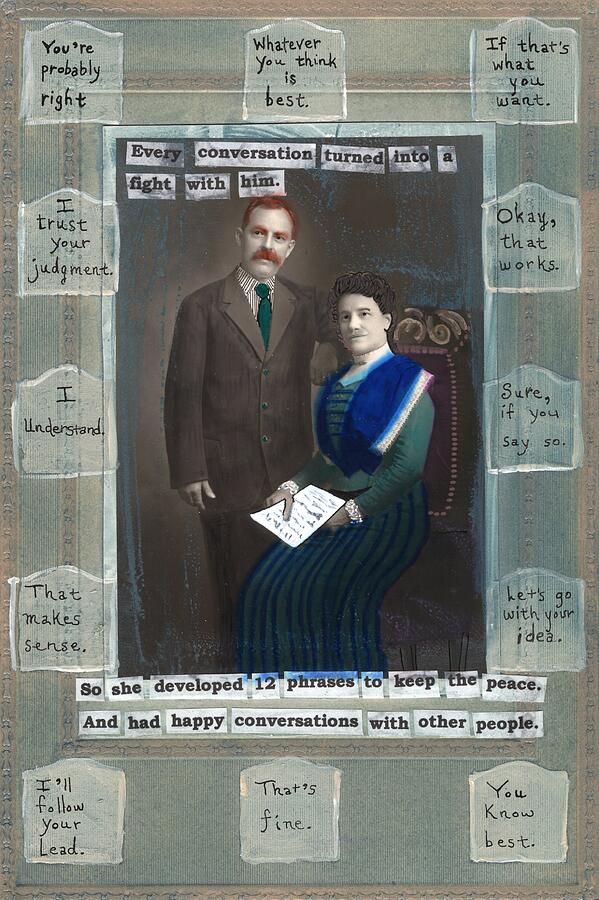 You're
probably
right
Whatever
You think
is
best.
If that's
what
you
want.
Every conversation turned into a
fight with him.
I
trust
your
judgment.
Okay,
that
works.
I
Understand.
Sure,
if you
say so.
That
makes
sense.
Let's go
with your
idea.
So she developed 12 phrases to keep the peace.
And had happy conversations with other people.
I'll
follow
your
Lead.
That's
fine.
You
Know
best.